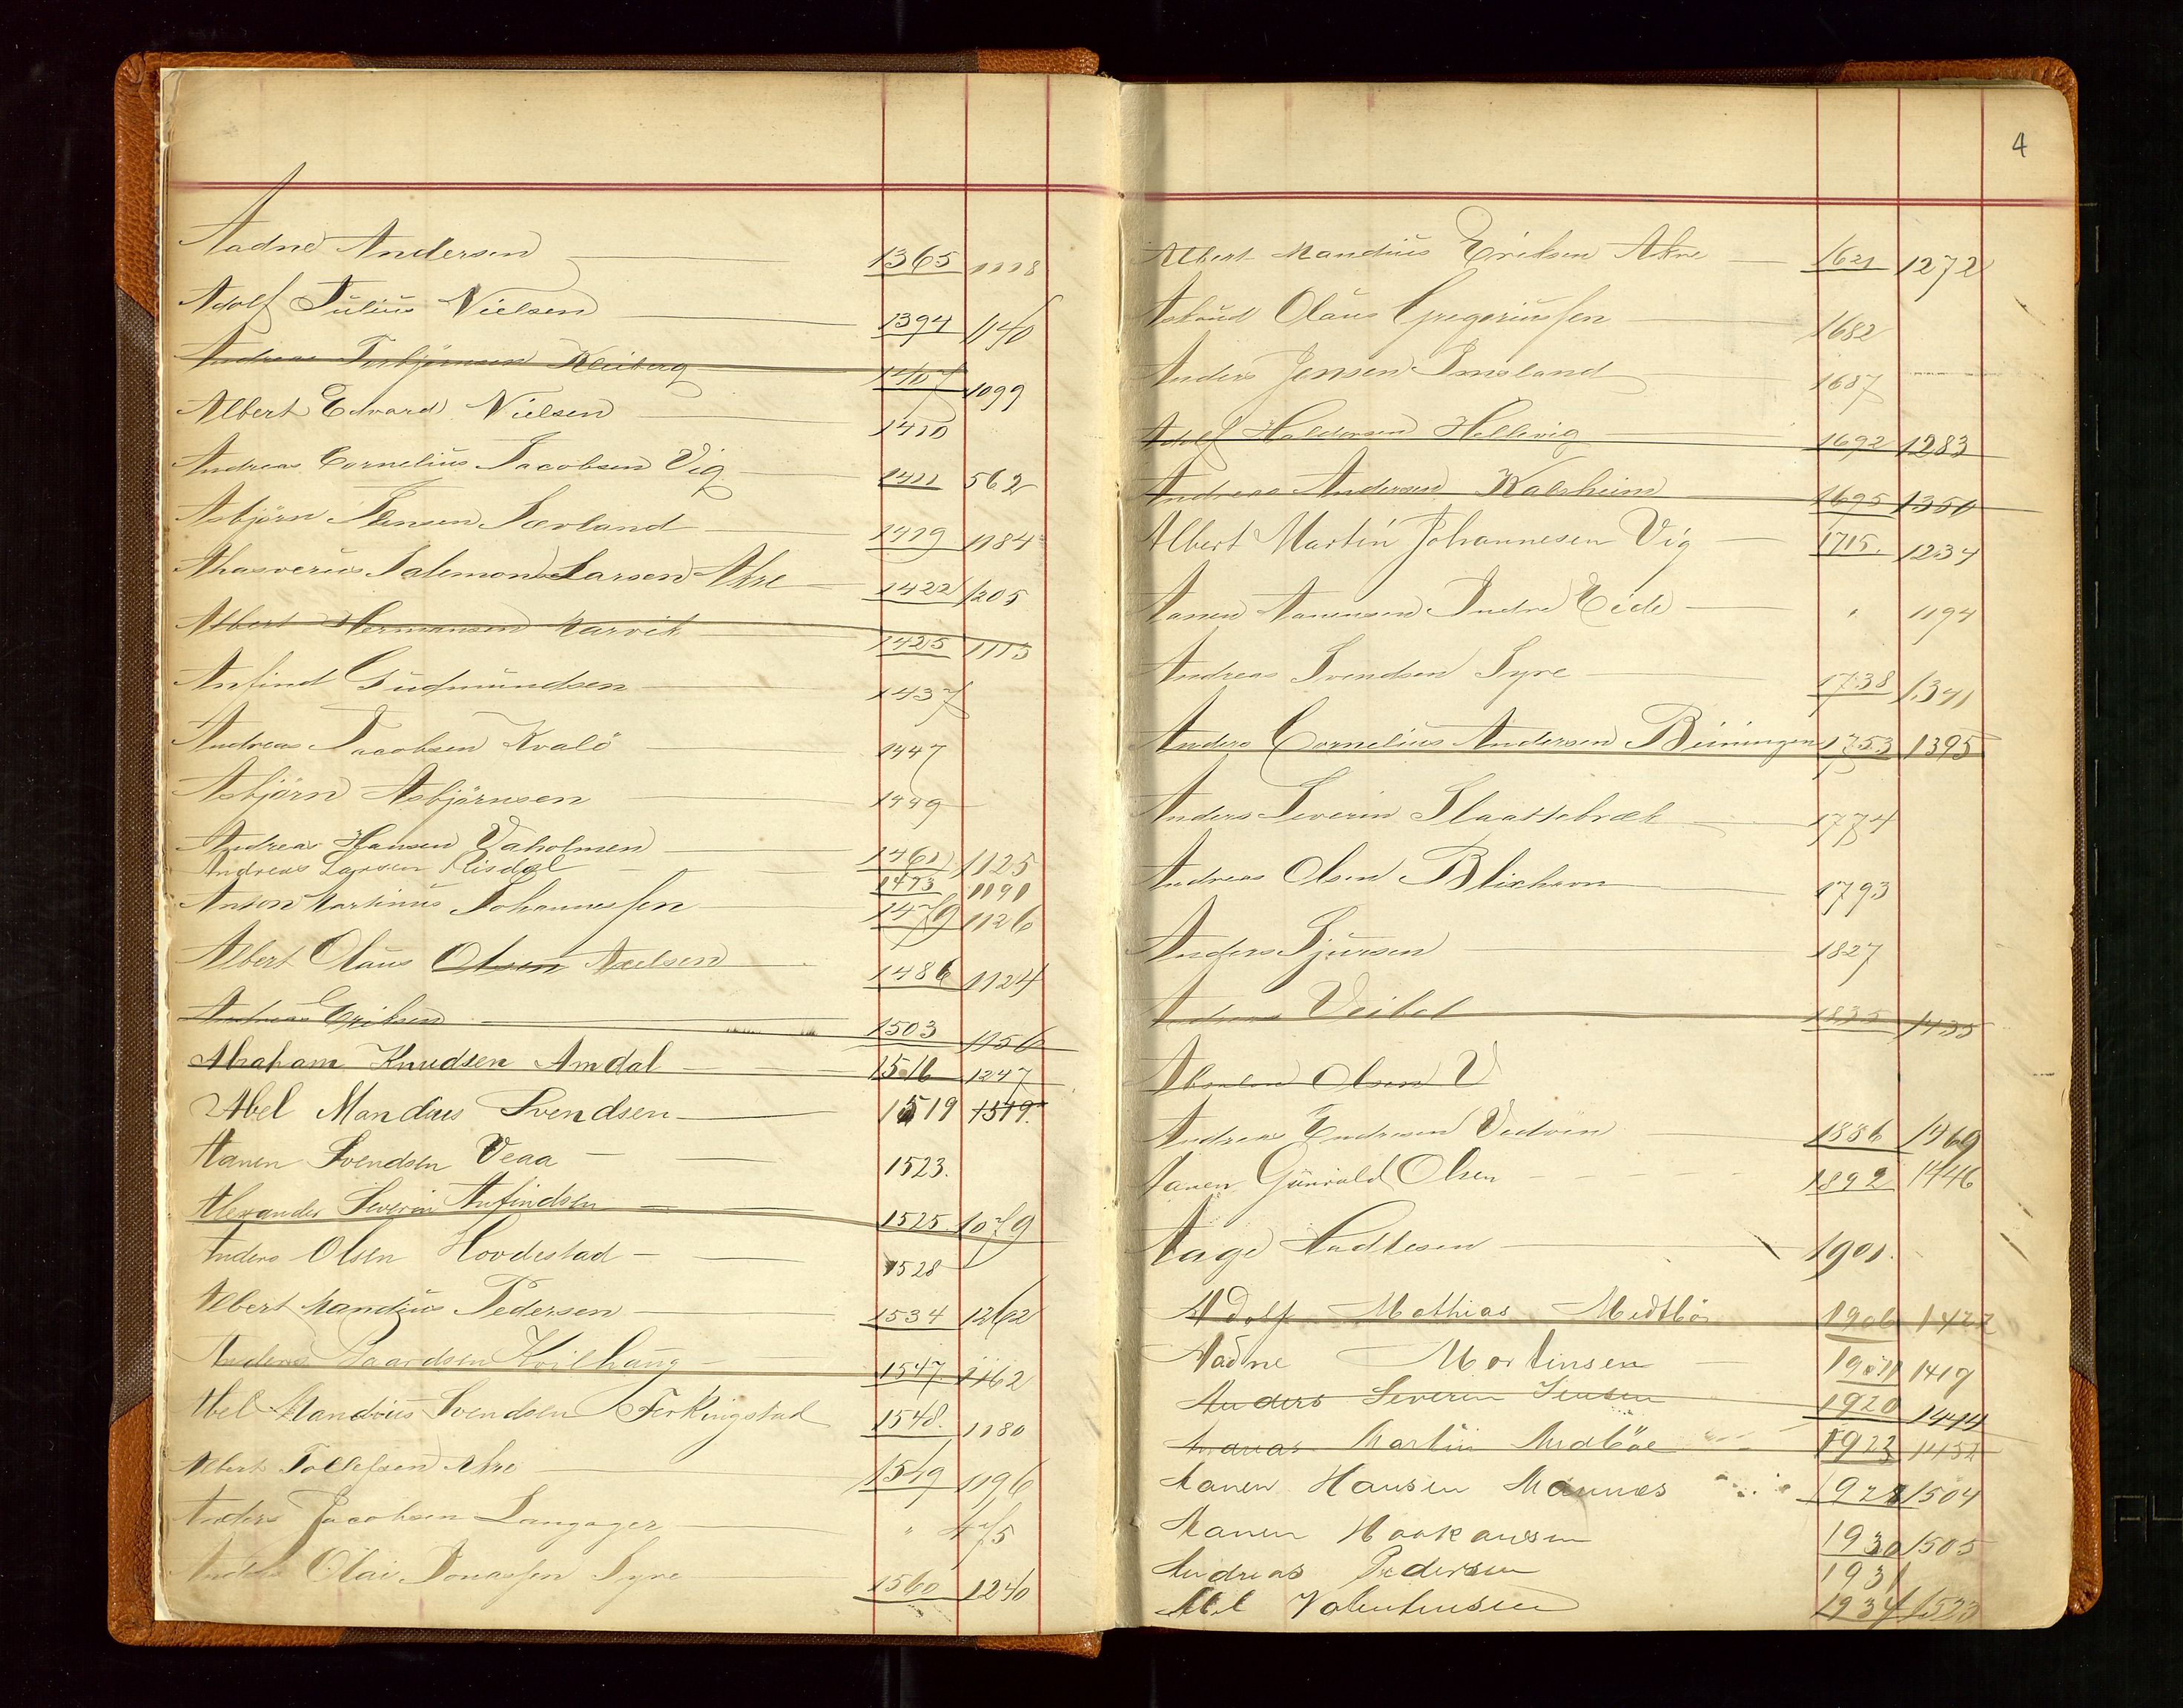 Aadne Andersen 1365 1118
Adolf Julius Nielsen 1394 1140
Andreas Torbjörnsen Kleiberg 1407 1099
Albert Edvard Nielsen 1410
Andreas Cornelius Jacobsen Vig 1411 562
Asbjörn Jensen Sævland 1419 1184
Ahasverus Salemonsen Larsen Akre 1422 1205
Albert Hermansen Narvik 1425 1113
Anfind Gudmundsen 1437
Andreas Jacobsen Kvalö 1447
Asbjörn Asbjörnsen 1449
Andreas Hansen Vaholmen 1461 1125
Andreas Larsen Risdal 1473 1191
Anton Martinus Johannessen 1479 1126
Albert Olaus Olsen Nielsen 1486 1124
Andreas Eriksen 1503 1156
Abraham Knudsen Amdal 1516 1247
Abel Mandius Svendsen 1519 1519
Aanen Svendsen Veaa 1523.
Alexander Severin Anfindsen 1525 1079
Anders Olsen Hovdestad 1528
Albert Mandius Pedersen 1534 1262
Anders Baardsen Kvilhaug 1547 1162
Abel Mandius Svendsen Ferkingstad 1548. 1180
Albert Tollefsen Akre 1549 1196
Anders Jacobsen Langager " 475
Anders Olai Jonassen Syre 1560 1240
4
Albert Mandius Eriksen Akre 1621 1272
Olaus Gregoriussen 1682
Anders Jensen Imsland 1687
Adolf Haldorsen Hellevig 1692 1283
Andreas Andersen Kalsheim 1695 1350
Albert Martin Johannesen Vig 1715. 1234
Aanen Aanensen Indre Eide " 1194
Andreas Svendsen Syre 1738 1341
Anders Cornelius Andersen Böiningen 1753 1395
Anders Severin Slaattebræk 1774
Andreas Olsen Blixhavn 1793
Anders Sjursen 1827
Andreas 1835 1435
Absalon Olsen V
Andreas Endresen Vedöen 1886 1469
Aanen Gunvald Olsen 1892 1446
Aage 1901.
Adolf Mathias Midtbö 1906 1422
Aadne Mortensen 1911 1419
Anders Severin Jensen 1920 1444
Martin Midböe 1923 1452
Aanen Hansen Mannes 1928 1504
Aanen Haakonsen 1930 1505
Andreas Pedersen 1931
Abel Valentinsen 1934 1533